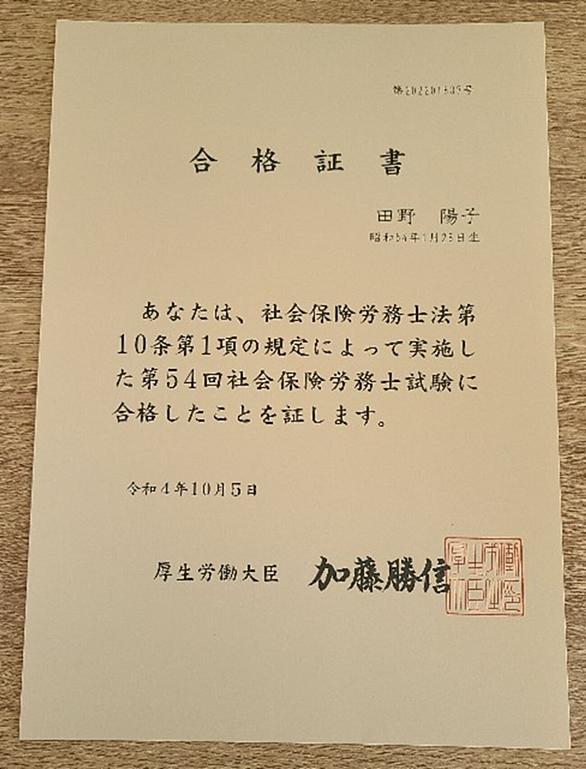 合格証書
田野 陽子
昭和54年1月23日生
あなたは、社会保険労務士法第
10条第1項の規定によって実施し
た第54回社会保険労務士試験に
合格したことを証します。
令和4年10月5日
厚生労働大臣 加藤勝信